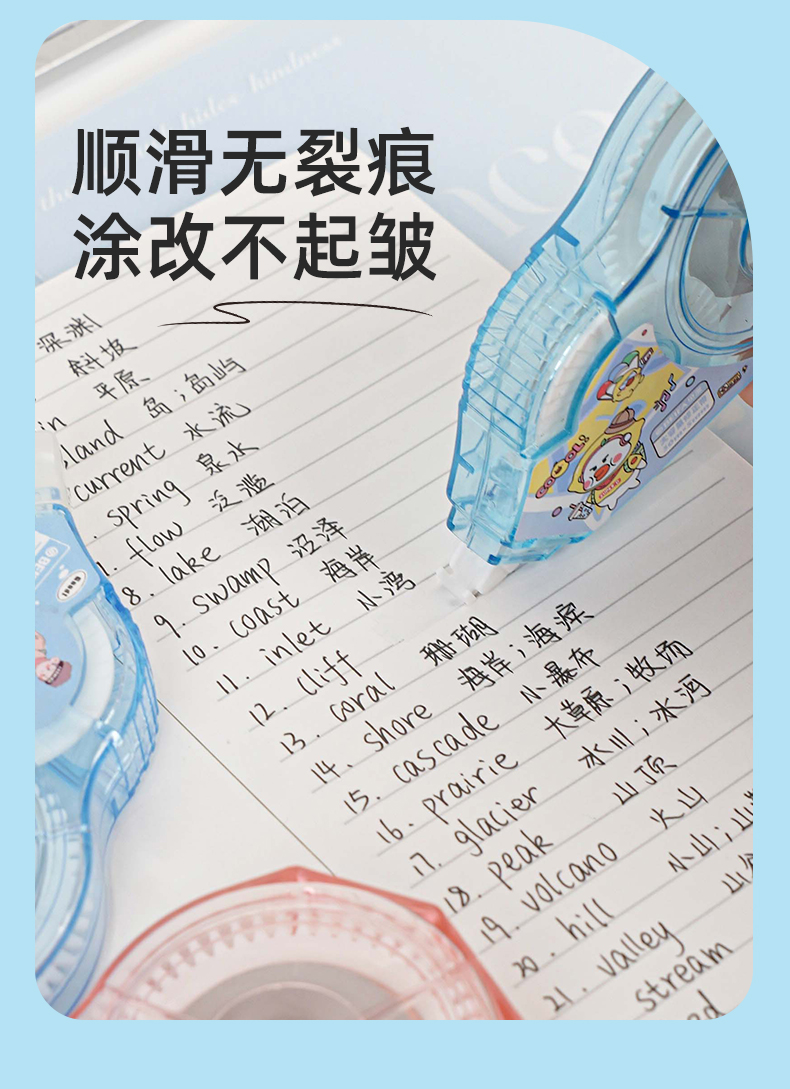 顺滑无裂痕
涂改不起皱
深渊
斜坡
平原
land 岛;岛屿
current 水流
spring 泉水
flow 泛滥
8. lake 湖泊
9. swamp 沼泽
10. coast 海岸
11. inlet 小湾
12. cliff
13. coral 珊瑚
14. shore 海岸;海滨
15. cascade 小瀑布
16. prairie 大草原;牧场
17. glacier 冰川;冰河
18. peak 山顶
19. volcano 火山
20. hill 小山;
21. valley 山
stream